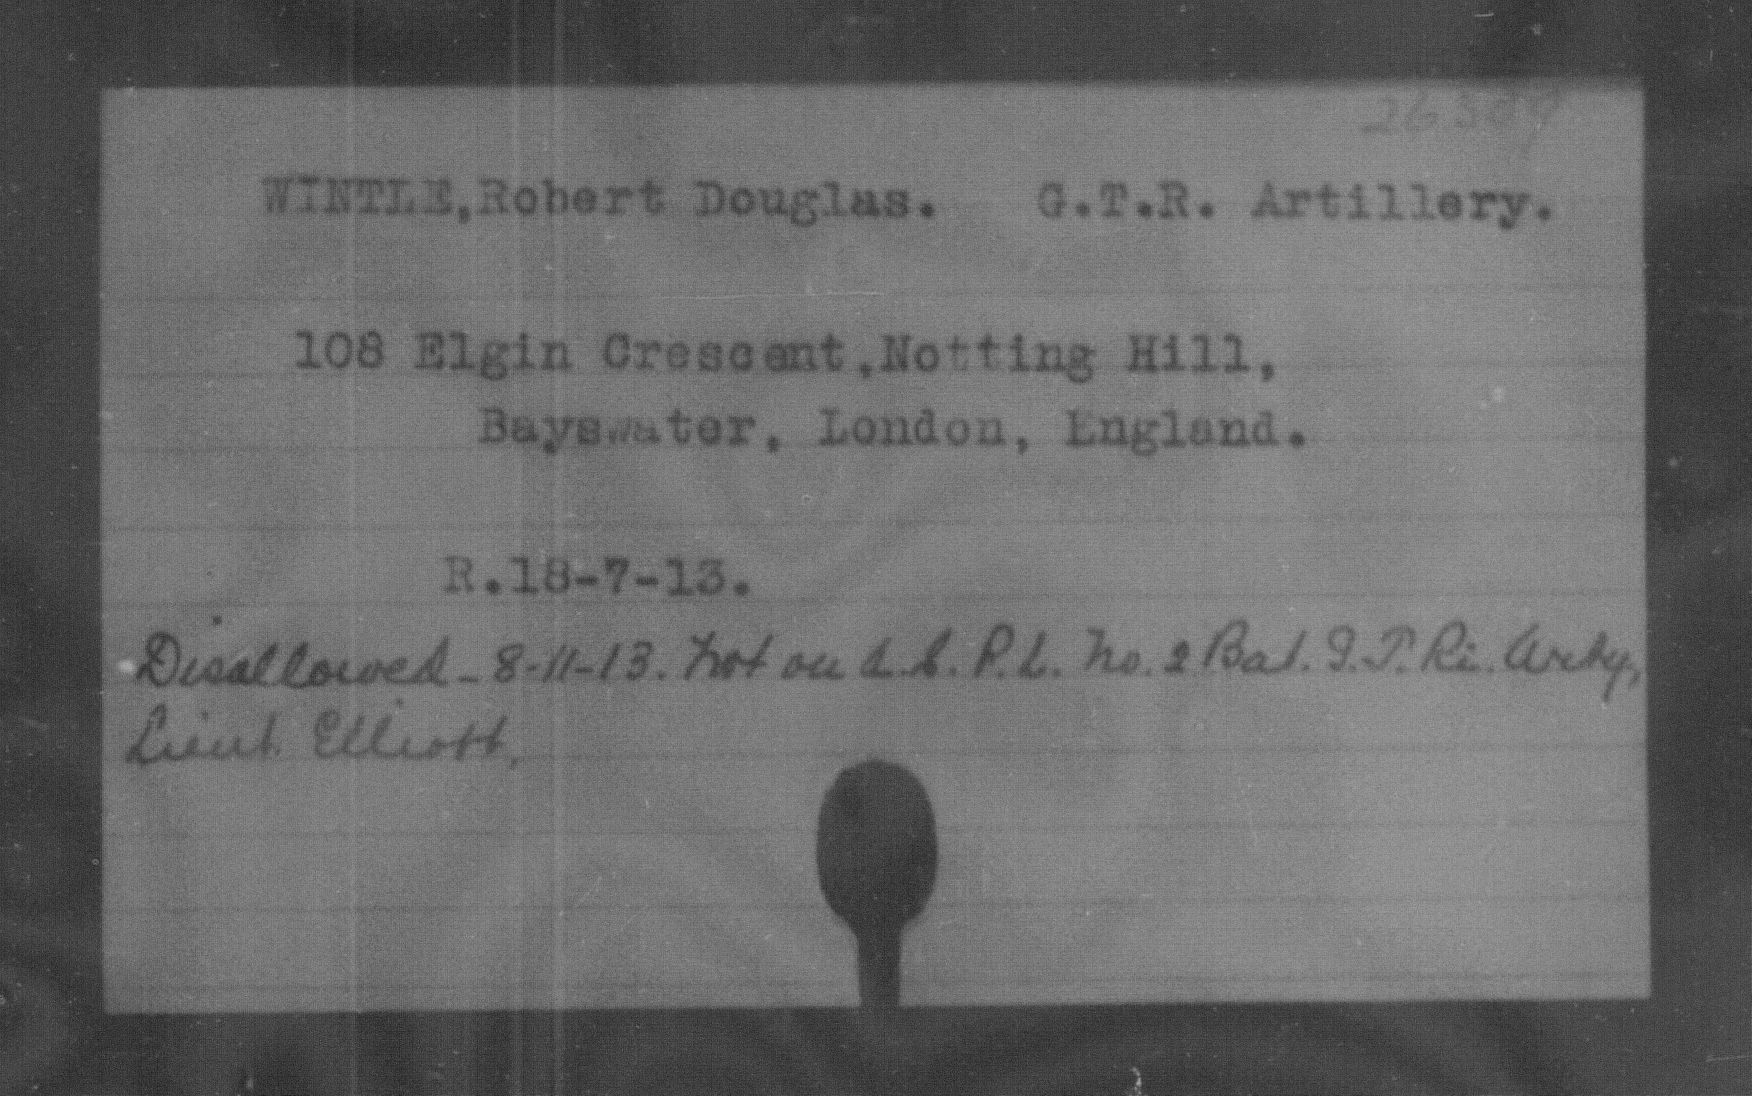 26309
WINTLE,Robert Douglas. G.T.R. Artillery.
108 Elgin Crescent,Notting Hill,
Bayswater, London, England.
R.18-7-13.
Disallowed - 8-11-13. Not on A.S.P.L. No. 2 Bat. G.T.Ri. Arty,
Lieut. Elliott,